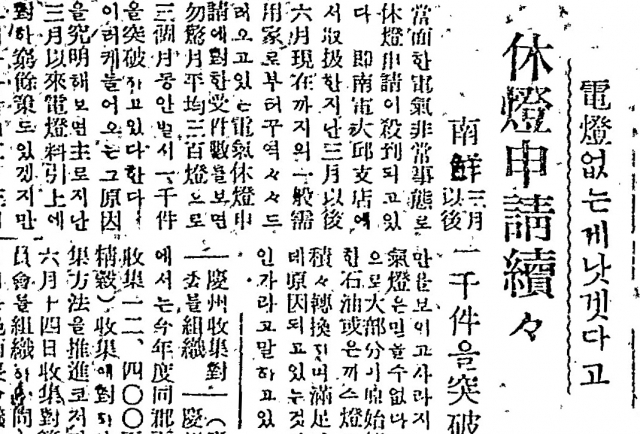 電燈없는게낫겟다고
休燈申請續々
南鮮 三月以後 一千件을突破
當面한電氣非常事態로
休燈申請이殺到되고있
다 即南電大邱支店에
서取扱한지난三月以後
六月現在까지의一般需
用家로부터꾸역々々드
러오고있는電氣休燈申
請에對한受件數을보면
勿驚月平均三百燈으로
三個月동안벌서一千件
을突破하고있다한다
이러케들어오는그原因
을究明해보면主로지난
三月以來電燈料引上에
對한窮餘策도있겟지만
만을보이고사라지
氣燈은믿을수없다
으로大部分이原始
한石油或은까스燈
積々轉換되며滿足
데原因되고있는것
인가라고말하고있
慶州收集對
委를組織
에서는今年度同郡
收集一二、四〇〇
精穀)收集에對하
集方法을推進코저
六月十四日收集對
員會를組織하